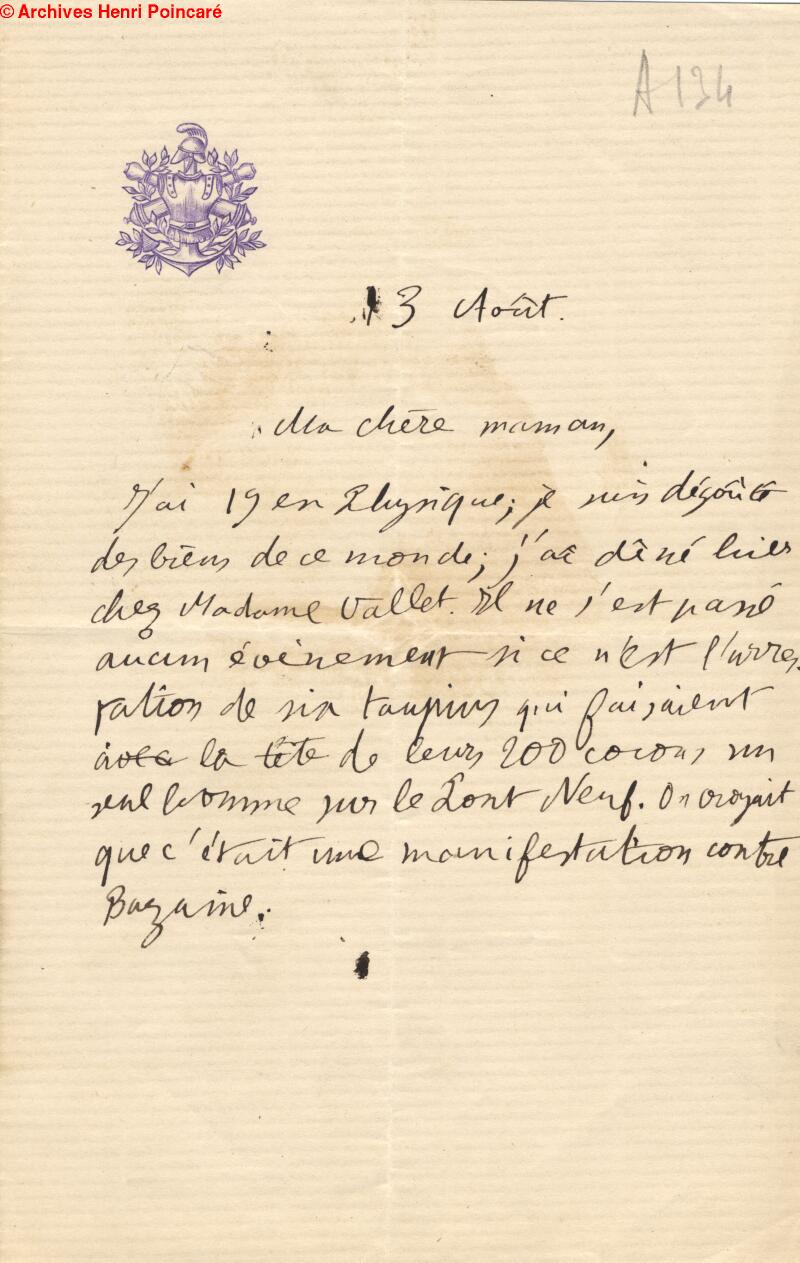 © Archives Henri Poincaré
A134
13 Août.
Ma chère maman,
J'ai 19 en Physique; je suis dégoûté
des biens de ce monde; j'ai dîné hier
chez Madame Vallet. Il ne s'est passé
aucun évènement si ce n'est l'arres-
tation de six taupins qui faisaient
à la tête de leurs 200 cocons un
seul homme sur le Pont Neuf. On croyait
que c'était une manifestation contre
Bazaine.